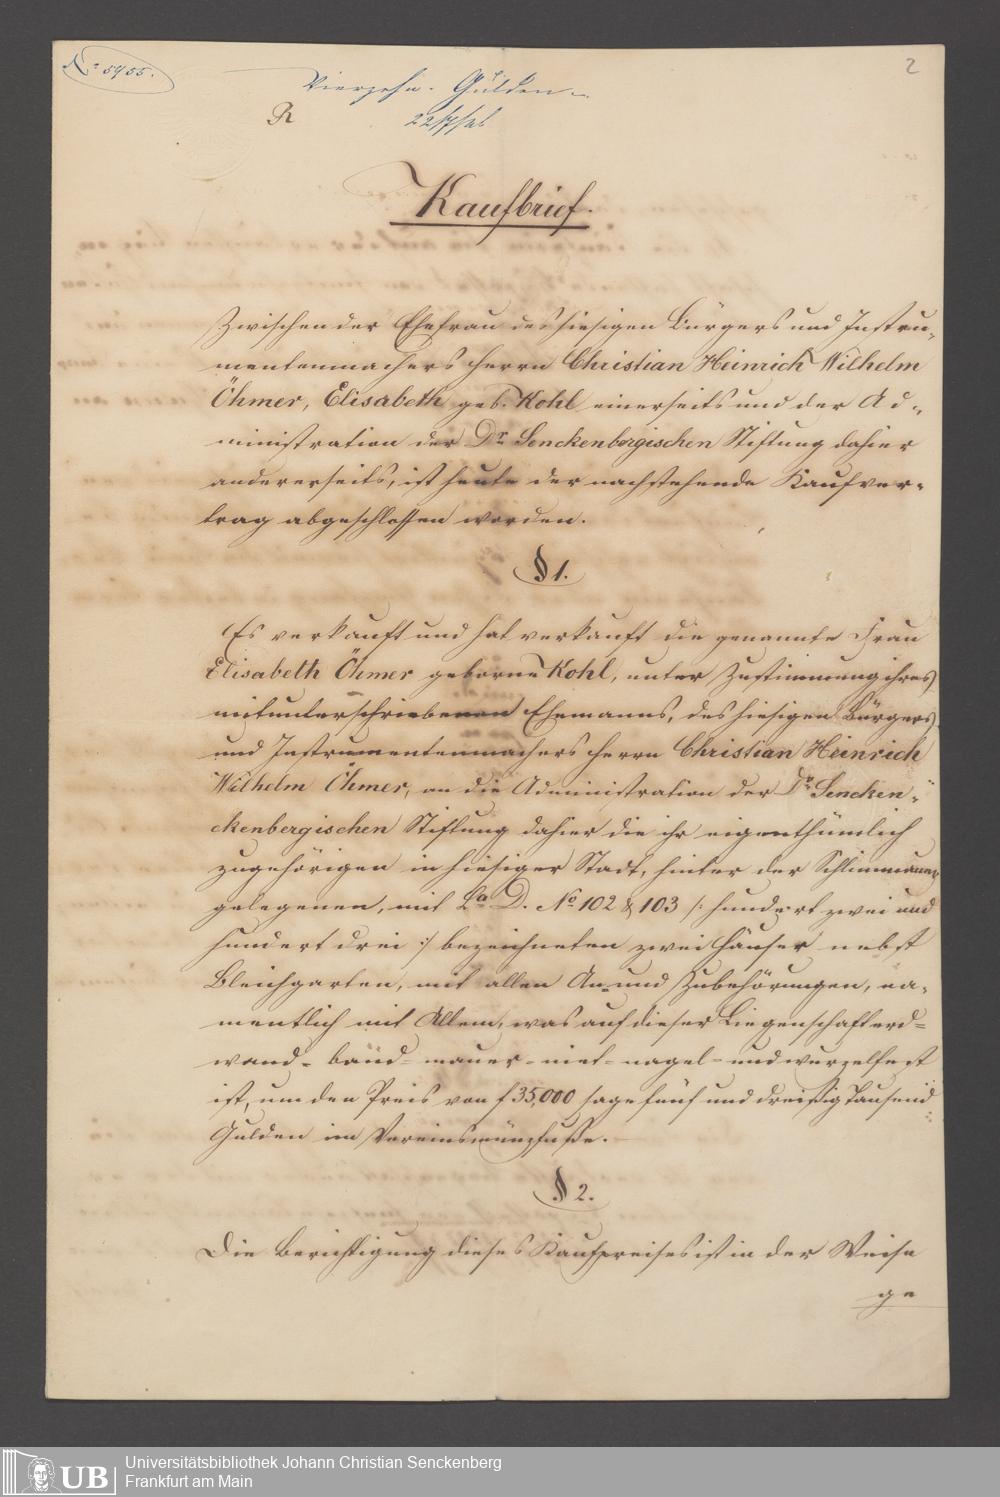 No 5955.
2
Vierzehn Gulden
R
Kaufbrief.
Zwischen der Ehefrau des hiesigen Bürgers und Instru-
mentenmachers Herrn Christian Heinrich Wilhelm
Öhmer, Elisabeth geb. Kohl einerseits und der Ad-
ministration der Dr. Senckenbergischen Stiftung dahier
andererseits, ist heute der nachstehende Kaufver-
trag abgeschlossen worden.
§ 1.
Es verkauft und hat verkauft die genannte Frau
Elisabeth Öhmer geborne Kohl, unter Zustimmung ihres
mitunterschriebenen Ehemanns, des hiesigen Bürgers
und Instrumentenmachers Herrn Christian Heinrich
Wilhelm Öhmer, an die Administration der Dr. Sencken-
ckenbergischen Stiftung dahier die ihr eigenthümlich
zugehörigen in hiesiger Stadt, hinter der Schlimmauer
gelegenen, mit La D. No 102 & 103 /: hundert zwei und
hundert drei :/ bezeichneten zwei Häuser nebst
Bleichgarten, mit allen An- und Zubehörungen, na-
mentlich mit Allem, was auf dieser Liegenschaft erd-
wand- band- mauer- niet- nagel- und wurzelfest
ist, um den Preis von f 35,000 sage fünf und dreißig Tausend
Gulden im Vereinsmünzfuße.
§ 2.
Die Berichtigung dieses Kaufpreises ist in der Weise
ge
UB
Universitätsbibliothek Johann Christian Senckenberg
Frankfurt am Main